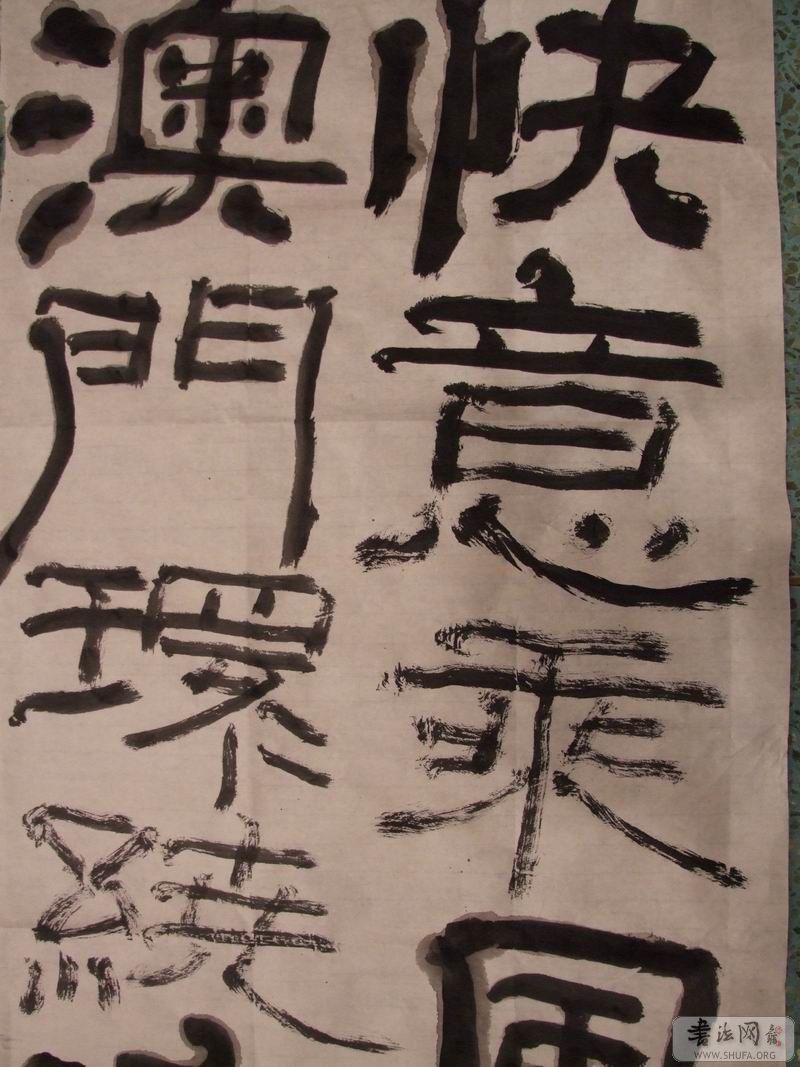 快意乘風
澳門環繞
书法网
WWW.SHUFA.ORG